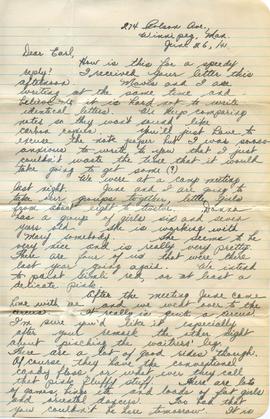 274 Polson Ave.,
Winnipeg, Man.
June 26, 41.
Dear Earl,
How is this for a speedy
reply? I received your letter this
afternoon. and I are
writing at the same time and
believe me it is hard not to write
identical letters. We keep comparing
notes so they won't sound like
carbon copies. You'll just have to
excuse the note paper but I was soooo
anxious to write now that I just
couldn't waste the time that it would
take going to get some (?)
We were at a camp meeting
last night. June and I are going to
take groups together, little
from eight to
has a group of girls six and seven
years old she is working with
somebody. She seems to be
very nice and is really very pretty.
There are four of us that were there
last year going again. We intend
to paint red, or at least a
delicate pink.
After the meeting June came
home with me and we went over to the
circus. It really is quite a circus.
I'm sure you'd like it, especially
after your remark the other night
about pinching the waitress' leg.
There are a lot of good rides though.
Of course, they have the conventional
candy floss or what ever they call
that pink fluffy stuff. There are lots
of games, and loads of fat girls
and dancers. Too bad that
you couldn't be here tomorrow. It is